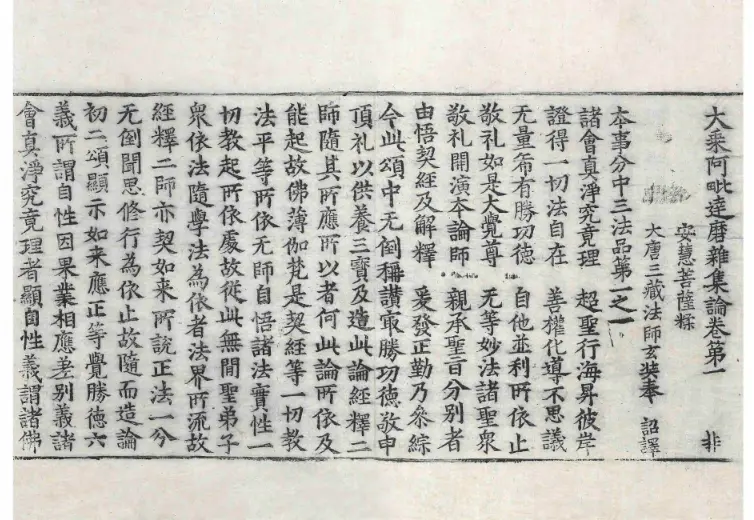 大乘阿毗達磨雜集論卷第一 非
安慧菩薩糅
大唐三藏法師玄奘奉 詔譯
本事分中三法品第一之一
諸會真淨究竟理 超聖行海昇彼岸
證得一切法自在 善權化導不思議
无量希有勝功德 自他並利所依止
敬礼如是大覺尊 无等妙法諸聖衆
敬礼開演本論師 親承聖旨分別者
由悟契經及解釋 爰發正勤乃叅綜
今此頌中无倒稱讃冣勝功德敬申
頂礼以供養三寶及造此論經釋二
師隨其所應所以者何此論所依及
能起故佛薄伽梵是契經等一切教
法平等所依无師自悟諸法實性一
切教起所依處故從此無間聖弟子
衆依法隨學法為依者法界所流故
經釋二師亦契如來所說正法一分
无倒聞思修行為依止故隨而造論
初二頌顯示如來應正等覺勝德六
義所謂自性因果業相應差別義諸
會真淨究竟理者顯自性義謂諸佛